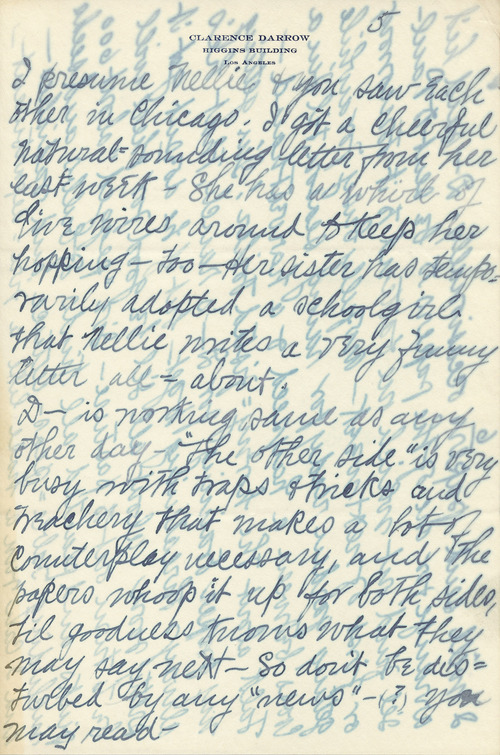 5
CLARENCE DARROW
HIGGINS BUILDING
LOS ANGELES
I presume Nellie & you saw each
other in Chicago. I got a cheerful
natural-sounding letter from her
last week - She has a whirl of
live wires around to keep her
hopping - too - Her sister has tempo-
rarily adopted a schoolgirl
that Nellie writes a very funny
letter all - about.
D - is working "same as any
other day - "The other side" is very
busy with traps & tricks and
treachery that makes a lot of
counterplay necessary, and the
papers whoop it up for both sides,
til goodness knows what they
may say next - So don't be dis-
turbed by any "news" - (?) you
may read -